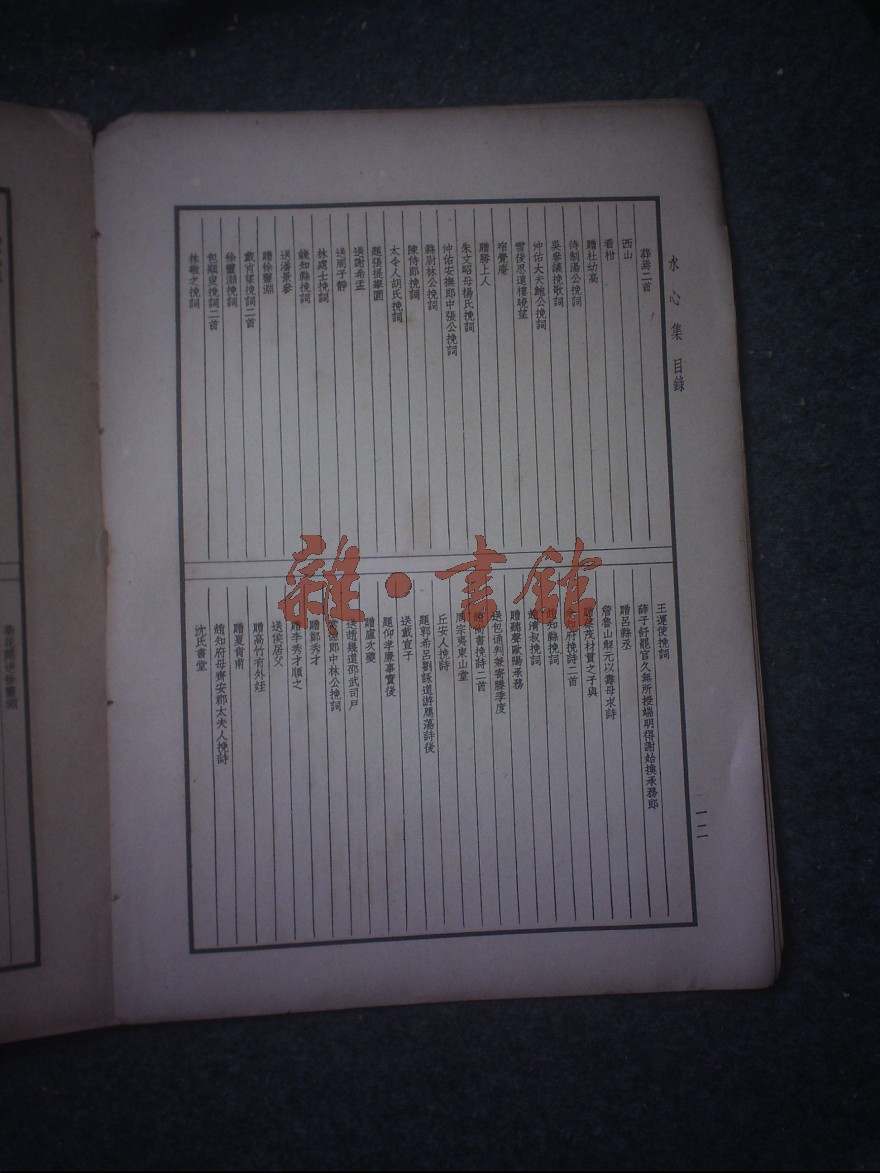 水心集 目錄
葬焉二首
西山
看柑
贈杜幼高
待制湯公挽詞
吳參議挽歌詞
沖佑大夫鮑公挽詞
雪後思遠樓曉望
宿覺庵
贈勝上人
朱文昭母楊氏挽詞
沖佑安撫郎中張公挽詞
縣尉林公挽詞
陳侍郎挽詞
太令人胡氏挽詞
題張提舉園
送謝希孟
送周子靜
林處士挽詞
錢知縣挽詞
送潘景參
贈徐靈淵
戴肖望挽詞二首
徐靈淵挽詞
包顒叟挽詞二首
林敏之挽詞
王運使挽詞
薛子舒罷官久無所授端明得謝始換承務郎
贈呂縣丞
詹魯山解元以壽母求詩
茂材貫之子與
府挽詩二首
知縣挽詞
叔挽詞
贈聽聲歐陽承務
送包通判兼寄滕季度
書挽詩二首
周宗夷東山堂
丘安人挽詩
題郭希呂劉詠道游鴈蕩詩後
送戴宣子
題仰孝廉事實後
贈盧次夔
送趙幾道邵武司戶
郎中林公挽詞
贈鄭秀才
李秀才順之
送侯居父
贈高竹有外姪
贈夏肯甫
趙知府母齊安郡太夫人挽詩
沈氏書堂
一二
雜·書館